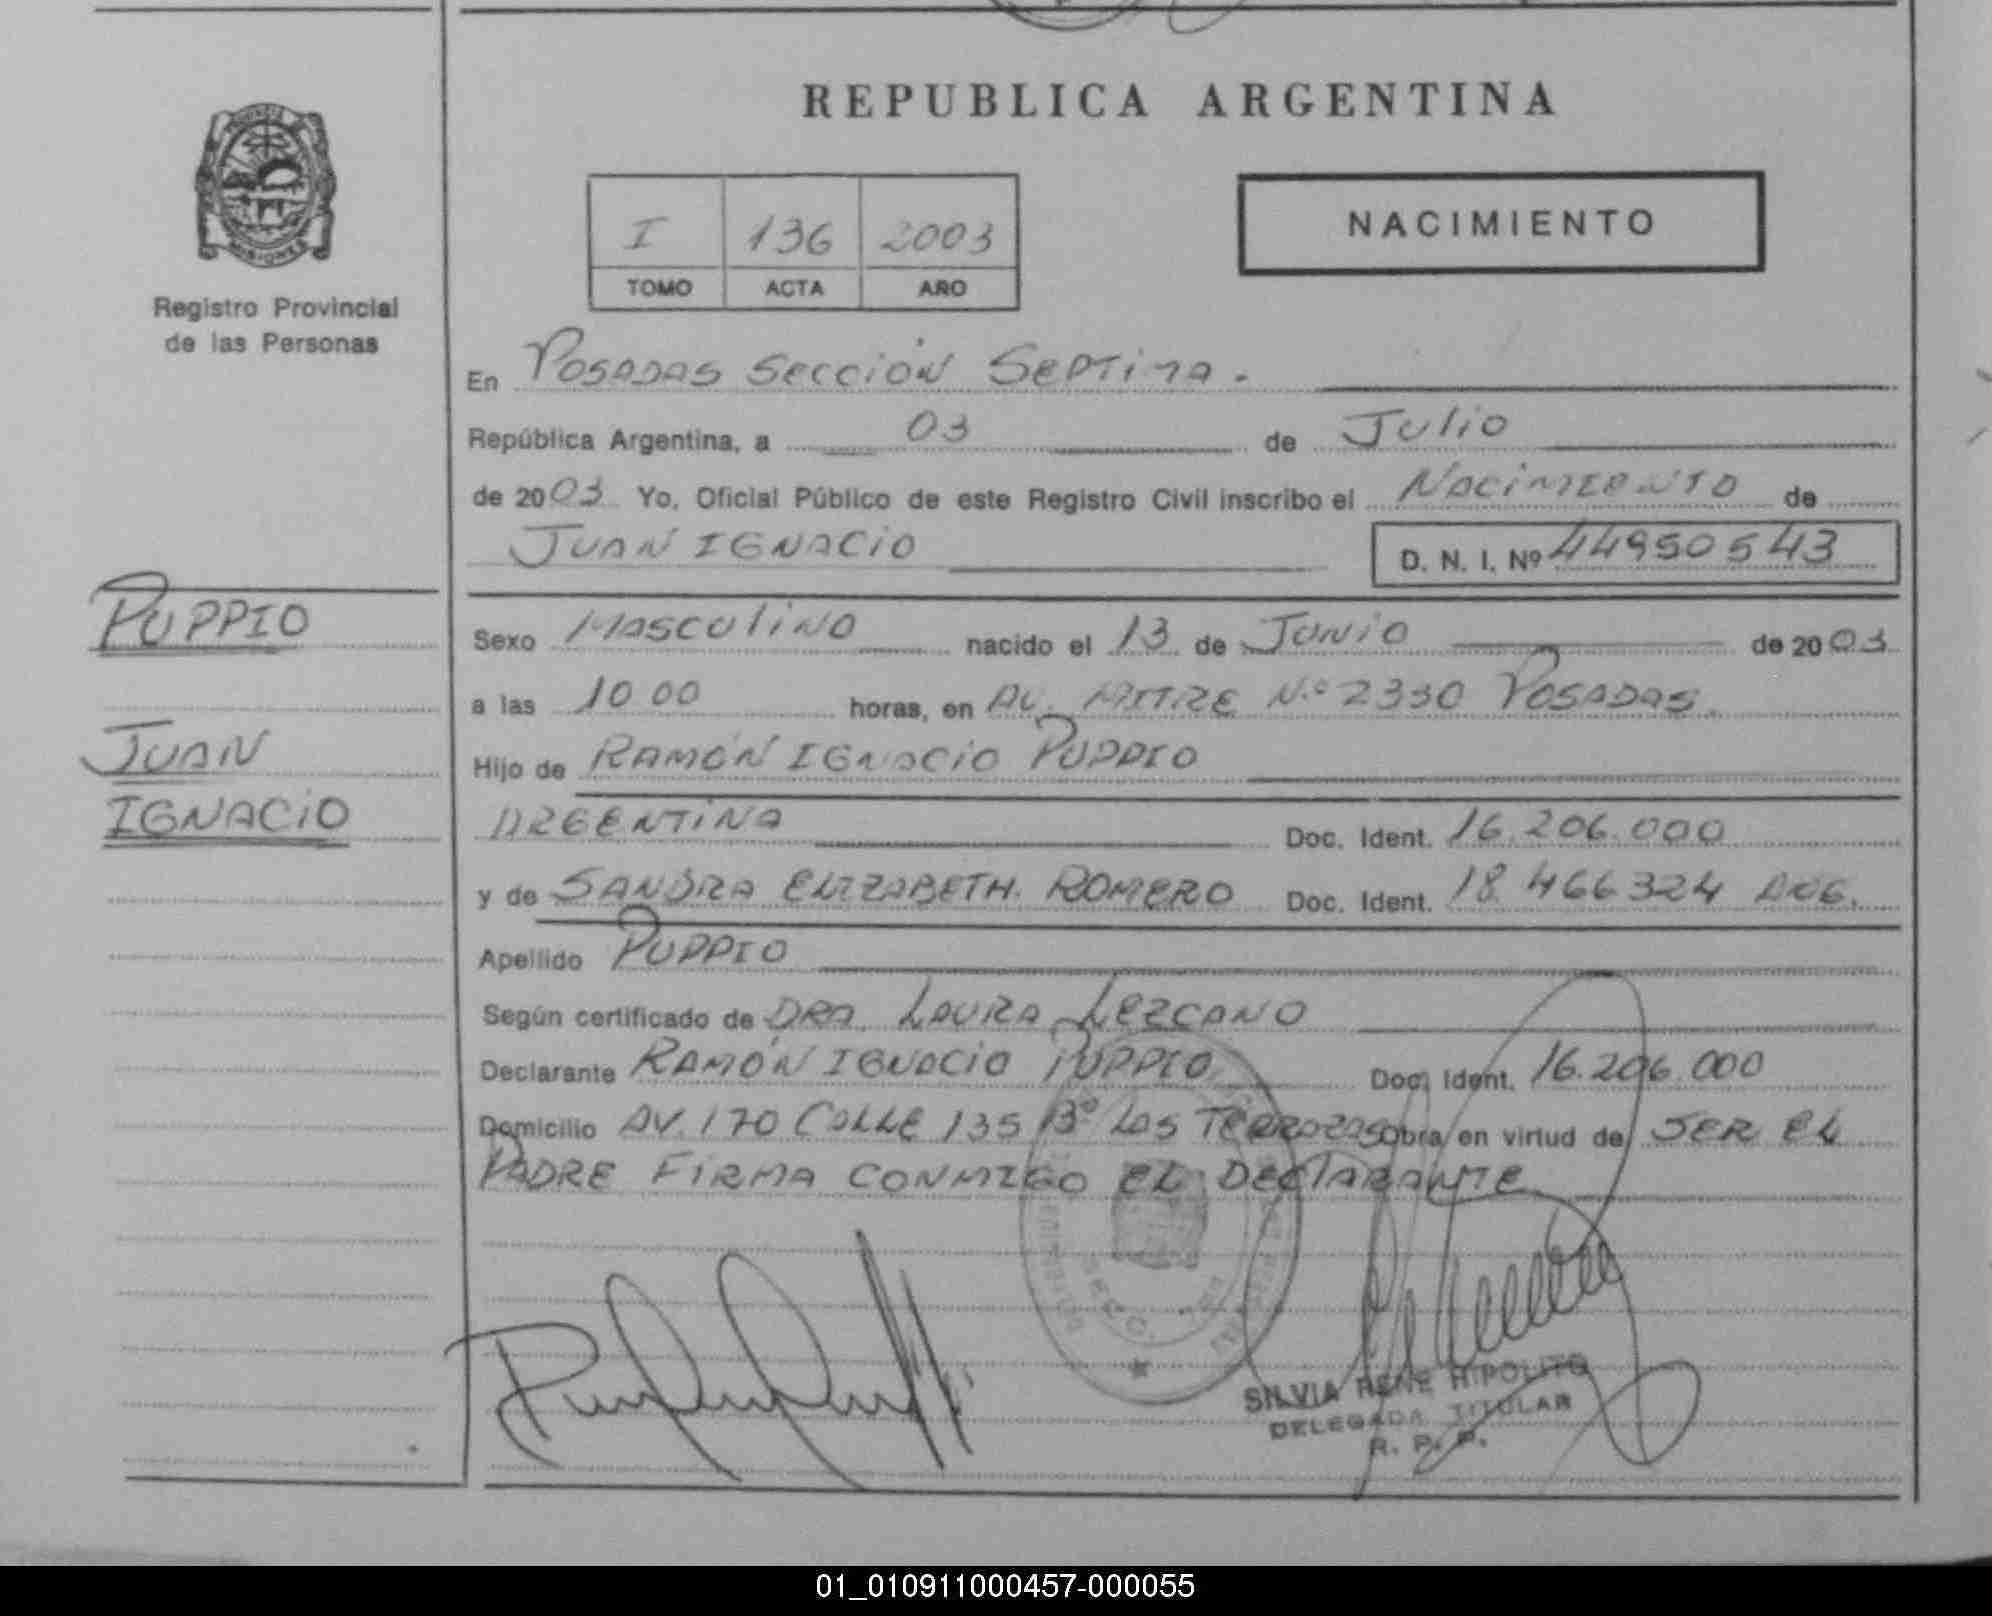 REPUBLICA ARGENTINA
MISIONES
Registro Provincial
de las Personas
I 136 2003
TOMO ACTA AÑO
NACIMIENTO
En POSADAS SECCIÓN SEPTIMA.
República Argentina, a 03 de Julio
de 2003 Yo, Oficial Público de este Registro Civil inscribo el NACIMIENTO de
JUAN IGNACIO D. N. I. Nº 44950543
PUPPIO
JUAN
IGNACIO
Sexo MASCULINO nacido el 13 de JUNIO de 2003
a las 10 00 horas, en AV. MITRE N.º 2330 POSADAS.
Hijo de RAMÓN IGNACIO PUPPIO
ARGENTINA Doc. Ident. 16.206.000
y de SANDRA ELIZABETH. ROMERO Doc. Ident. 18.466324 ARG.
Apellido PUPPIO
Según certificado de DRA. LAURA LEZCANO
Declarante RAMÓN IGNACIO PUPPIO Doc. Ident. 16.206.000
Domicilio AV. 170 CALLE 135 Bº LAS TERRAZAS obra en virtud de SER EL
PADRE FIRMA CONMIGO EL DECLARANTE
SILVIA RENE HIPOLITO
DELEGADA TITULAR
R. P. P.
01_010911000457-000055